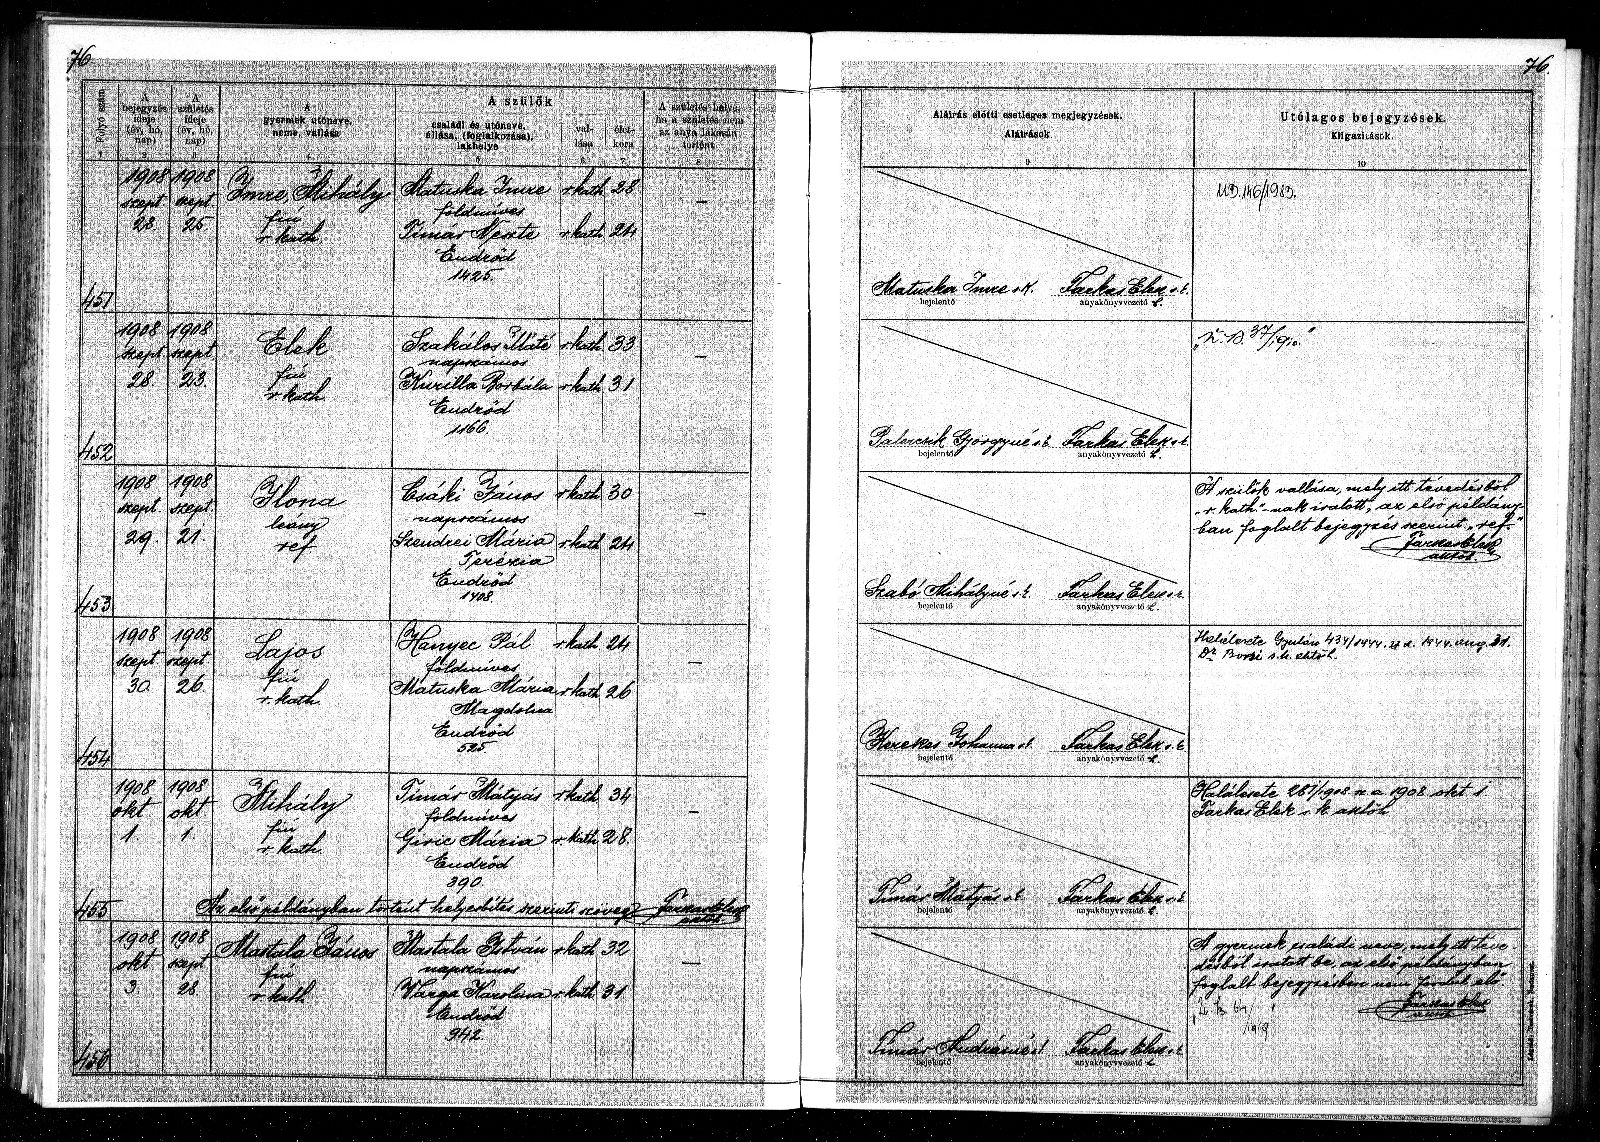 76
76.
Folyó szám
A bejegyzés ideje (év, hó, nap)
A születés ideje (év, hó, nap)
A gyermek utóneve, neme, vallása
A szülők
családi és utóneve, állása, (foglalkozása), lakhelye
vallása
életkora
A születés helye, ha a születés nem az anya lakásán történt
Aláírás előtti esetleges megjegyzések.
Aláírások
Utólagos bejegyzések.
Kiigazítások.
1 2 3 4 5 6 7 8 9 10
451
1908 szept 28.
1908 szept 25.
Imre, Mihály
fiú
r. kath.
Matuska Imre r. kath 28
földmíves
Timár r. kath 24
Endrőd
1425.
—
Matuska Imre s.k.
bejelentő
Farkas Elek s.k.
anyakönyvvezető h.
UB.146/1983.
452
1908 szept 28.
1908 szept 23.
Elek
fiú
r. kath.
Szakálos Máté r. kath 33
napszámos
Kurilla Borbála r. kath 31
Endrőd
1166.
—
Palercsik Györgyné s.k.
bejelentő
Farkas Elek s.k.
anyakönyvvezető h.
37/1910
453
1908 szept. 29.
1908 szept. 21.
Ilona
leány
ref
Csáki János r. kath 30
napszámos
Szendrei Mária r. kath 24
Terézia
Endrőd
1408.
—
Szabó Mihályné s.k.
bejelentő
Farkas Elek s.k.
anyakönyvvezető h.
A szülők vallása, mely itt tévedésből
„r. kath."-nak iratott, az első példány-
ban foglalt bejegyzés szerint „ref."
Farkas Elek
454
1908 szept 30.
1908 szept 26.
Lajos
fiú
r. kath.
Hanyec Pál r. kath 24
földmíves
Matuska Mária r. kath 26
Magdolna
Endrőd
525.
—
Kerekes Johanna s.k.
bejelentő
Farkas Elek s.k.
anyakönyvvezető h.
Halálesete Gyulán 434/1944. sz. a. 1944. aug. 31.
Dr. Borsi s.k.
455
1908 okt 1.
1908 okt 1.
Mihály
fiú
r. kath.
Timár Mátyás r. kath 34
földmíves
Giric Mária r. kath 28.
Endrőd
390.
—
Az első példányban történt helyesbítés szerinti szöveg
Farkas Elek
Timár Mátyás s.k.
bejelentő
Farkas Elek s.k.
anyakönyvvezető h.
Halálesete 281/1908 sz a 1908 okt 1
Farkas Elek s. k.
456
1908 okt 3.
1908 szept 28.
Mastala János
fiú
r. kath
Mastala István r. kath 32
napszámos
Varga Karolina r. kath 31
Endrőd
942.
—
Timár Andrásné s.k.
bejelentő
Farkas Elek s.k.
anyakönyvvezető h.
A gyermek családi neve, mely itt téve-
désből iratott be, az első példányban
foglalt bejegyzésben nem fordul elő.
Farkas Elek